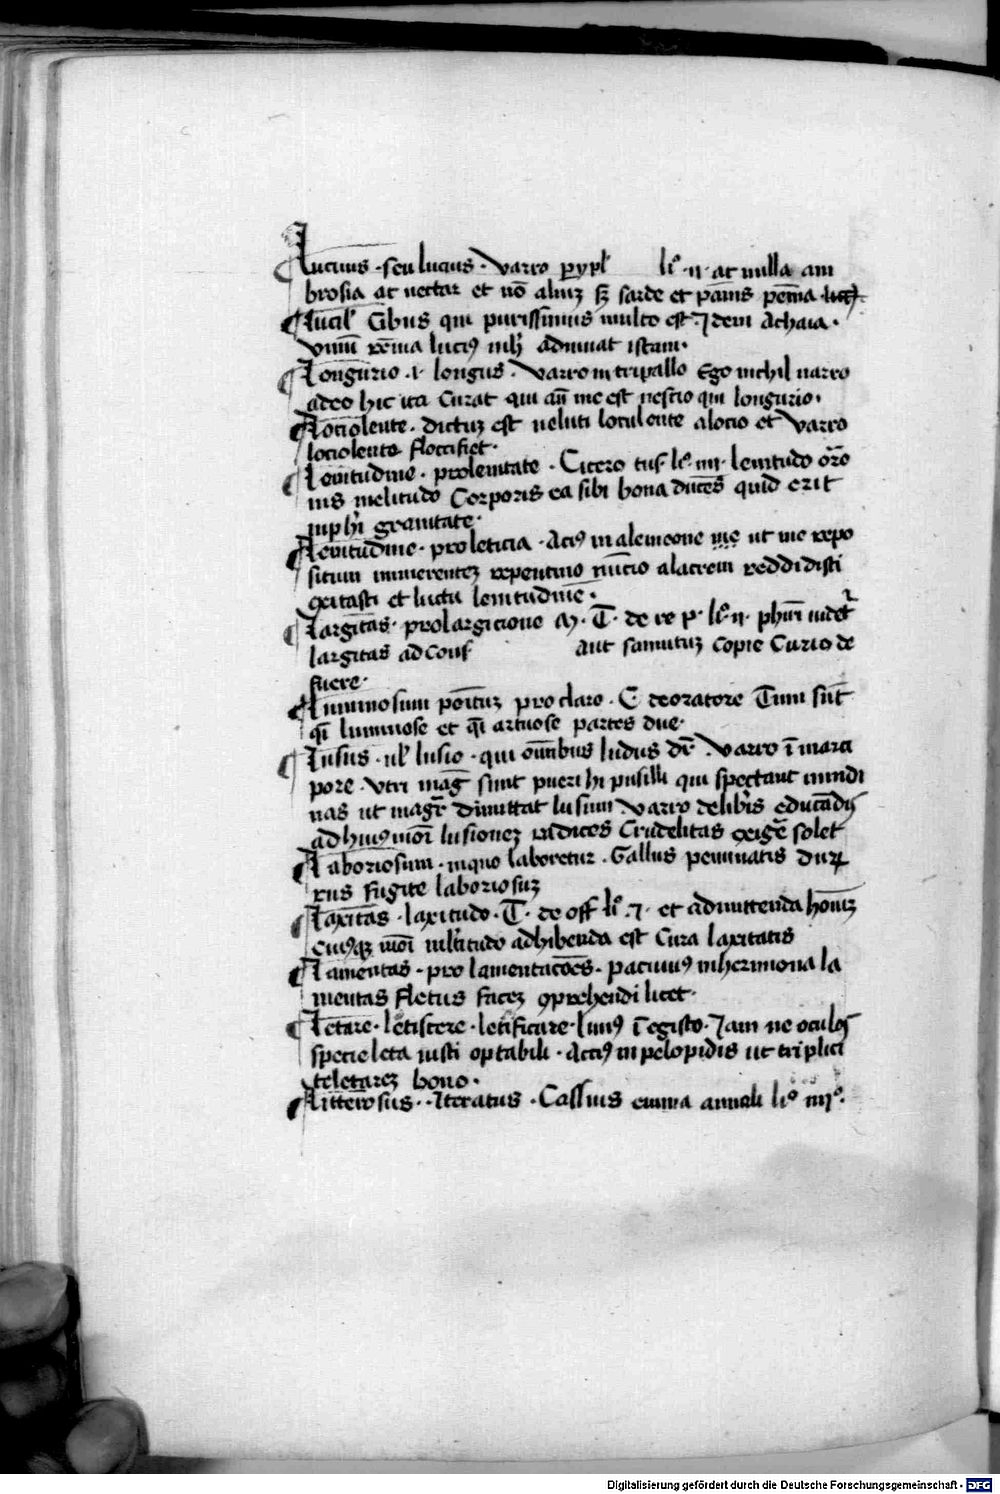 Lucuus · seu lucius · Varro pypl̄ li° · ii · at nulla am
brosia at nectar et nō aliuȝ sȝ sarde et panis pēma
Lucil̄ Cibus qui purissimus multo est · Idem Achaia ·
vnuȝ lucius nih̄ admuat istam ·
¶ Longurio · a longus · Varro in tripallo Ego nichil varro
adeo hic ita Curat qui añ me est nescio qui longurio ·
¶ Lociolente · dictuȝ est veluti loculente a locio et Varro
lociolente floccifiet ·
¶ Lenitudine · pro lenitate · Cicero tus̄ li° · iiii · lenitudo orō
nis melitudo Corporis ea sibi bona ducēs quid erit
in ph̄i grauitate ·
¶ Lenitudine · pro leticia · Acıꝯ in alcmeone me ut me repo
situm immerenteȝ repentino nūcio alacrem reddidisti
excitasti et luctu lenitudinē ·
¶ Largitas · pro largicione M · T · de re p · li° · ii · phūi videt̄
largitas ad Cons̄ Aut samutuȝ copie Curio de
fuere ·
¶ Luminosum pōituȝ pro claro · C deoratore Tum sūt
q̄i luminose et q̄i actuose partes due ·
¶ Lusus · ul̄ lusio · qui oūtibus ludus dr̄ · Varro ī marci
pore · vtri mag̃ sunt pueri hi pusilli qui spectant nundi
nas ut magr̄ dimittat lusum Varro de lib̄is educādis
ad huiꝯ mōi lusioneȝ radices Crudelitas exigē solet
¶ Laboriosum · in quo laboretur · Gallus peninatis
rus fugite laboriosuȝ
¶ Laxitas · laxitudo · T · de off li° · i · et admittenda homīȝ
cuiꝯqȝ mōi ml̄titudo adhibenda est Cura laxitatis
¶ Lamentas · pro lamentacōes · pacuuiꝯ in hermiona la
mentas fletus faceȝ ꝯprehendi licet ·
¶ Letare · letiscere · letificare · Liuiꝯ ī egisto · Iam ne oculos
specie leta iusti optabili · Acciꝯ in pelopidis ut triplici
te letareȝ bono ·
¶ Litterosus · · literatus · Cassius emina annali li° iiii° ·
Digitalisierung gefördert durch die Deutsche Forschungsgemeinschaft - DFG